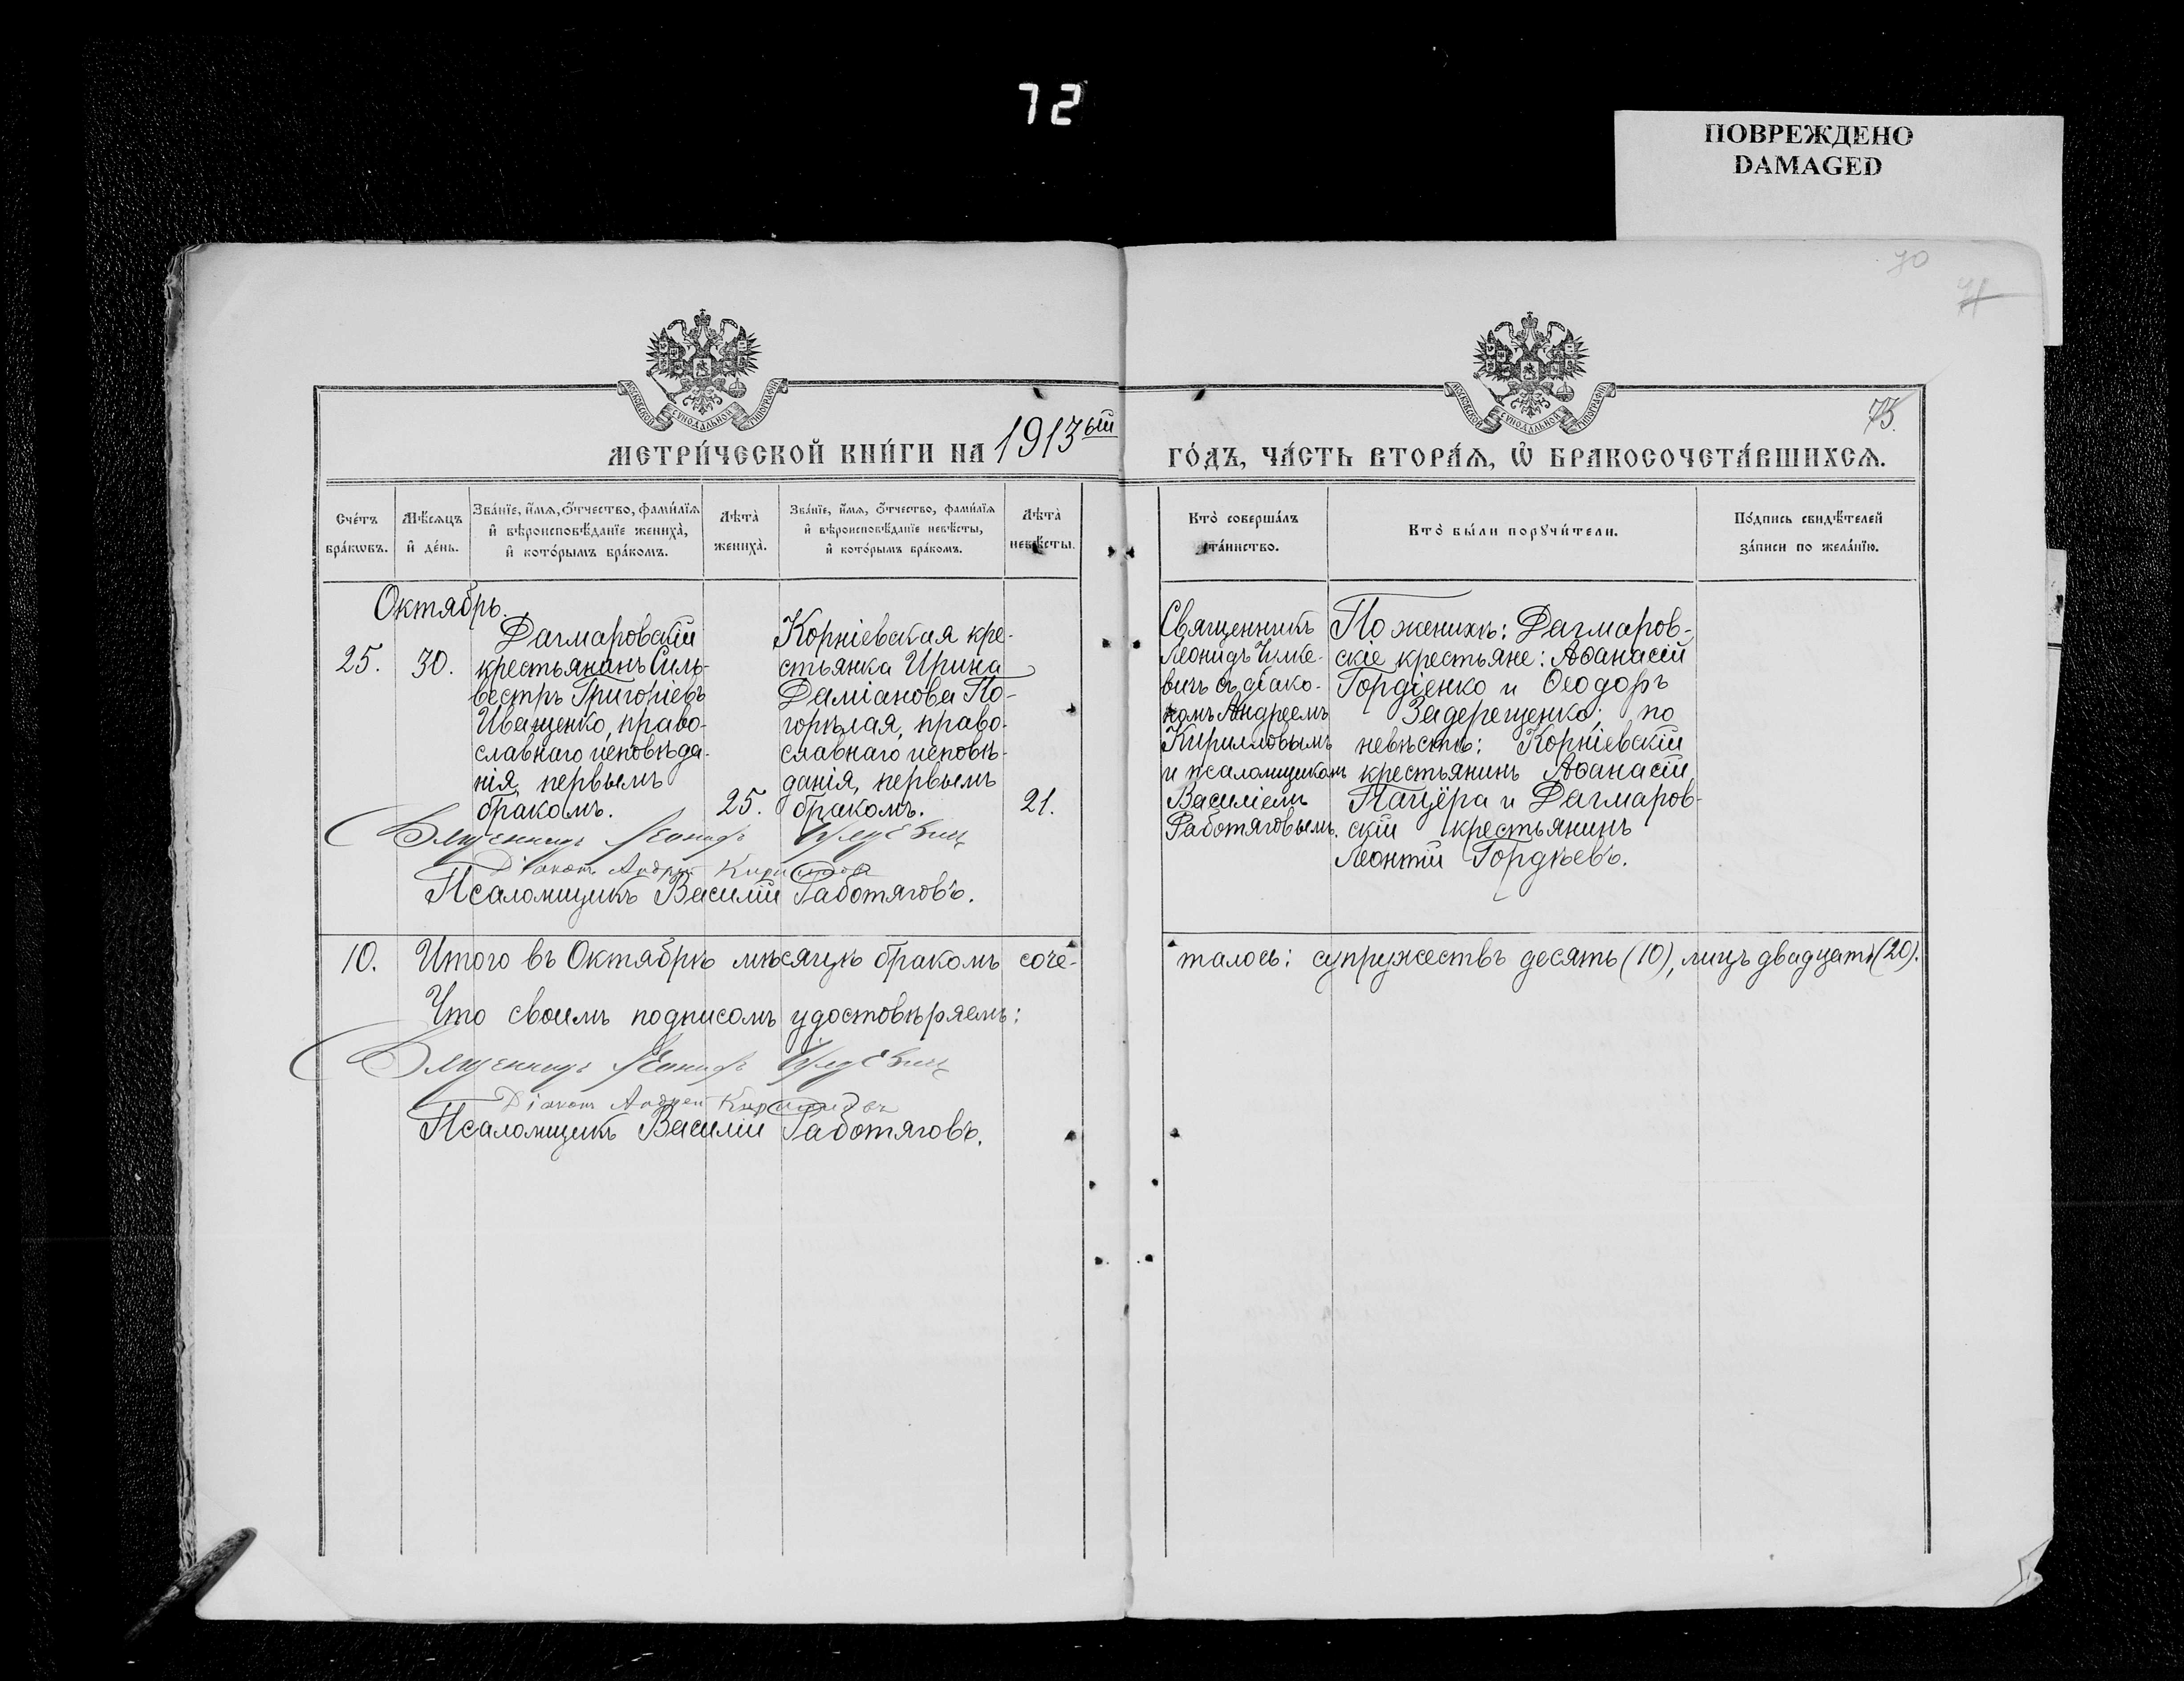 72
ПОВРЕЖДЕНО
DAMAGED
70
71
73.
МОСКОВСКОЙ СѴНОДАЛЬНОЙ ТИПОГРАФІИ
МОСКОВСКОЙ СѴНОДАЛЬНОЙ ТИПОГРАФІИ
МЕТРИ́ЧЕСКОЙ КНИ́ГИ НА 1913ый
ГО́ДЪ, ЧА́СТЬ ВТОРА́Ѧ, Ѽ БРАКОСОЧЕТА́ВШИХСѦ.
Сче́тъ
бра́кѡвъ.
Мѣ́сѧцъ
и҆ де́нь.
Зва́нїе, и҆́мѧ, ѻ҆́тчество, фами́лїѧ
и҆ вѣроисповѣ́данїе жениха̀,
и҆ кото́рымъ бра́комъ.
Лѣта̀
жениха̀.
Зва́нїе, и҆́мѧ, ѻ҆́тчество, фами́лїѧ
и҆ вѣроисповѣ́данїе невѣ́сты,
и҆ кото́рымъ бра́комъ.
Лѣта̀
невѣ́сты.
Кто̀ соверша́лъ
та́инство.
Кто̀ бы́ли порꙋчи́тели.
По́дпись свидѣ́телей
за́писи по жела́нїю.
Октябрь.
25.
30.
Дагмаровскій
крестьянинъ Силь-
вестръ Григоріевъ
Иващенко, право-
славнаго исповѣда-
нія, первымъ
бракомъ.
25.
Корніевская кре-
стьянка Ирина
Даміанова По-
горѣлая, право-
славнаго исповѣ-
данія, первымъ
бракомъ.
21.
Священникъ
Леонидъ Чулке-
вичъ съ діако-
номъ Андреемъ
Кирилловымъ
и псаломщикомъ
Василіемъ
Работяговымъ.
По женихѣ: Дагмаров-
скіе крестьяне: Аѳанасій
Гордіенко и Ѳеодоръ
Задерещенко; по
невѣстѣ: Корніевскій
крестьянинъ Аѳанасій
Пацёра и Дагмаров-
скій крестьянинъ
Леонтій Гордѣевъ.
Священникъ Леонидъ
Діаконъ Андрей Кирилловъ
Псаломщикъ Василій Работяговъ.
10. Итого въ Октябрѣ мѣсяцѣ бракомъ соче-
талось: супружествъ десять (10), лицъ двадцать (20).
Что своимъ подписомъ удостовѣряемъ:
Священникъ Леонидъ
Діаконъ Андрей Кирилловъ
Псаломщикъ Василій Работяговъ.